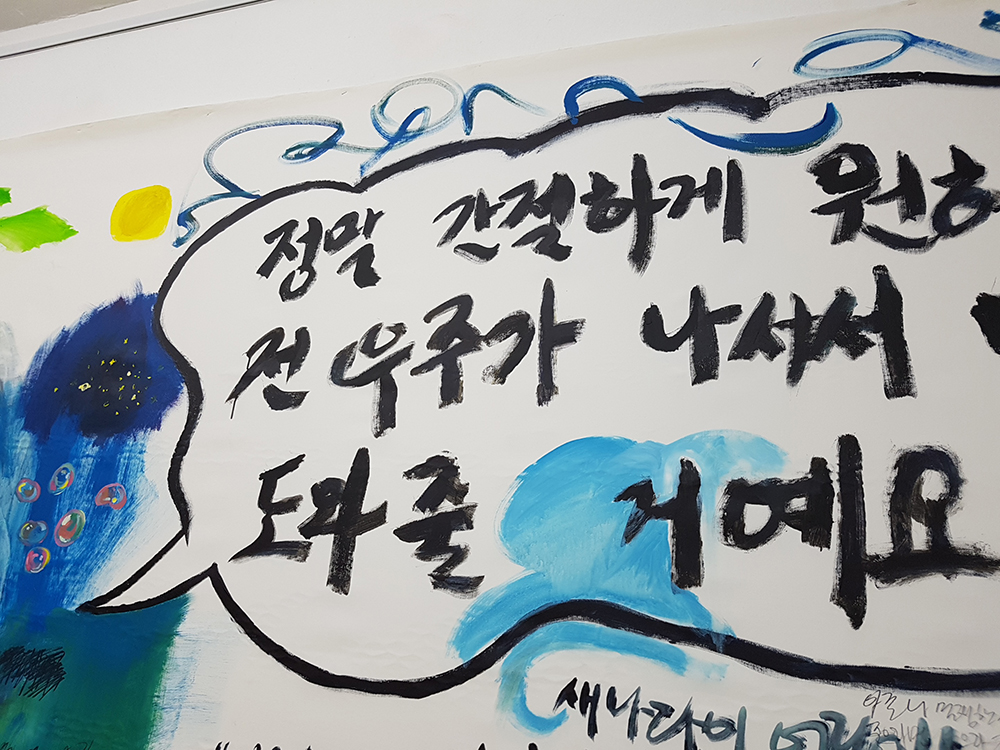 정말 간절하게 원하
전 우주가 나서서
도와줄 거예요
새나라이